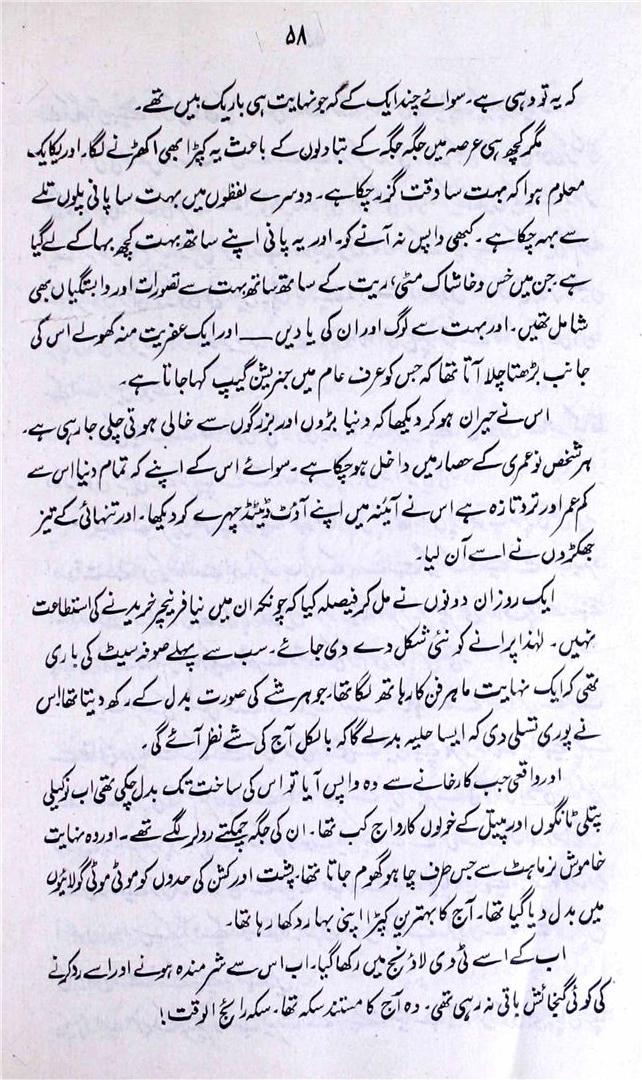 ۵۸
کہ یہ تو وہی ہے۔ سوائے چند ایک کے کہ جو نہایت ہی باریک بیں تھے۔
مگر کچھ ہی عرصہ میں جگہ جگہ کے تبادلوں کے باعث یہ کپڑا بھی اکھڑنے لگا۔ اور یکایک
معلوم ہوا کہ بہت سا وقت گزر چکا ہے۔ دوسرے لفظوں میں بہت سا پانی پلوں تلے
سے بہہ چکا ہے۔ کبھی واپس نہ آنے کو۔ اور یہ پانی اپنے ساتھ بہت کچھ بہا کے لے گیا
ہے جن میں خس و خاشاک مٹی، ریت کے ساتھ ساتھ بہت سے تصورات اور وابستگیاں بھی
شامل تھیں۔ اور بہت سے لوگ اور ان کی یادیں ــــ اور ایک عفریت منہ کھولے اس کی
جانب بڑھتا چلا آتا تھا کہ جس کو عرف عام میں جنریشن گیپ کہا جاتا ہے۔
اس نے حیران ہو کر دیکھا کہ دنیا بڑوں اور بزرگوں سے خالی ہوتی چلی جا رہی ہے۔
ہر شخص نو عمری کے حصار میں داخل ہو چکا ہے۔ سوائے اس کے اپنے کہ تمام دنیا اس سے
کم عمر اور تر و تازہ ہے اس نے آئینہ میں اپنے آؤٹ ڈیٹڈ چہرے کو دیکھا۔ اور تنہائی کے تیز
جھکڑوں نے اسے آن لیا۔
ایک روز ان دونوں نے مل کر فیصلہ کیا کہ چونکہ ان میں نیا فرنیچر خریدنے کی استطاعت
نہیں۔ لہٰذا پرانے کو نئی شکل دے دی جائے۔ سب سے پہلے صوفہ سیٹ کی باری
تھی کہ ایک نہایت ماہر فن کار ہاتھ لگا تھا، جو ہر شے کی صورت بدل کے رکھ دیتا تھا! اس
نے پوری تسلی دی کہ ایسا حلیہ بدلے گا کہ بالکل آج کی شے نظر آئے گی۔
اور واقعی جب کارخانے سے وہ واپس آیا تو اس کی ساخت تک بدل چکی تھی اب نوکیلی
پتلی ٹانگوں اور پیتل کے خولوں کا رواج کب تھا۔ ان کی جگہ چمکتے رولر لگے تھے۔ اور وہ نہایت
خاموش نرماہٹ سے جس طرف چاہو گھوم جاتا تھا۔ پشت اور کشن کی حدوں کو موٹی موٹی گولائیوں
میں بدل دیا گیا تھا۔ آج کا بہترین کپڑا اپنی بہار دکھا رہا تھا۔
اب کے اسے ٹی وی لاؤنج میں رکھا گیا۔ اب اس سے شرمندہ ہونے اور اسے رد کرنے
کی کوئی گنجائش باقی نہ رہی تھی۔ وہ آج کا مستند سکہ تھا۔ سکہ رائج الوقت!